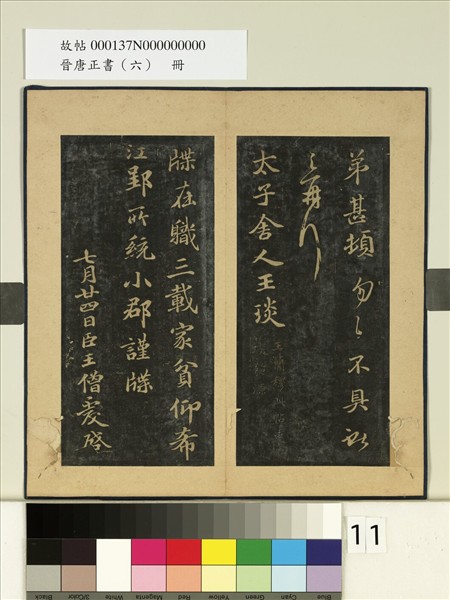 故帖 000137N000000000
晉唐正書（六） 冊
弟甚頓匆〻不具
太子舍人王琰
牒在職三載家貧仰希
江郢所統小郡謹牒
七月廿四日臣王僧虔啓
11
Black
3/Color
White
Magenta
Red
Yellow
Green
Cyan
Blue